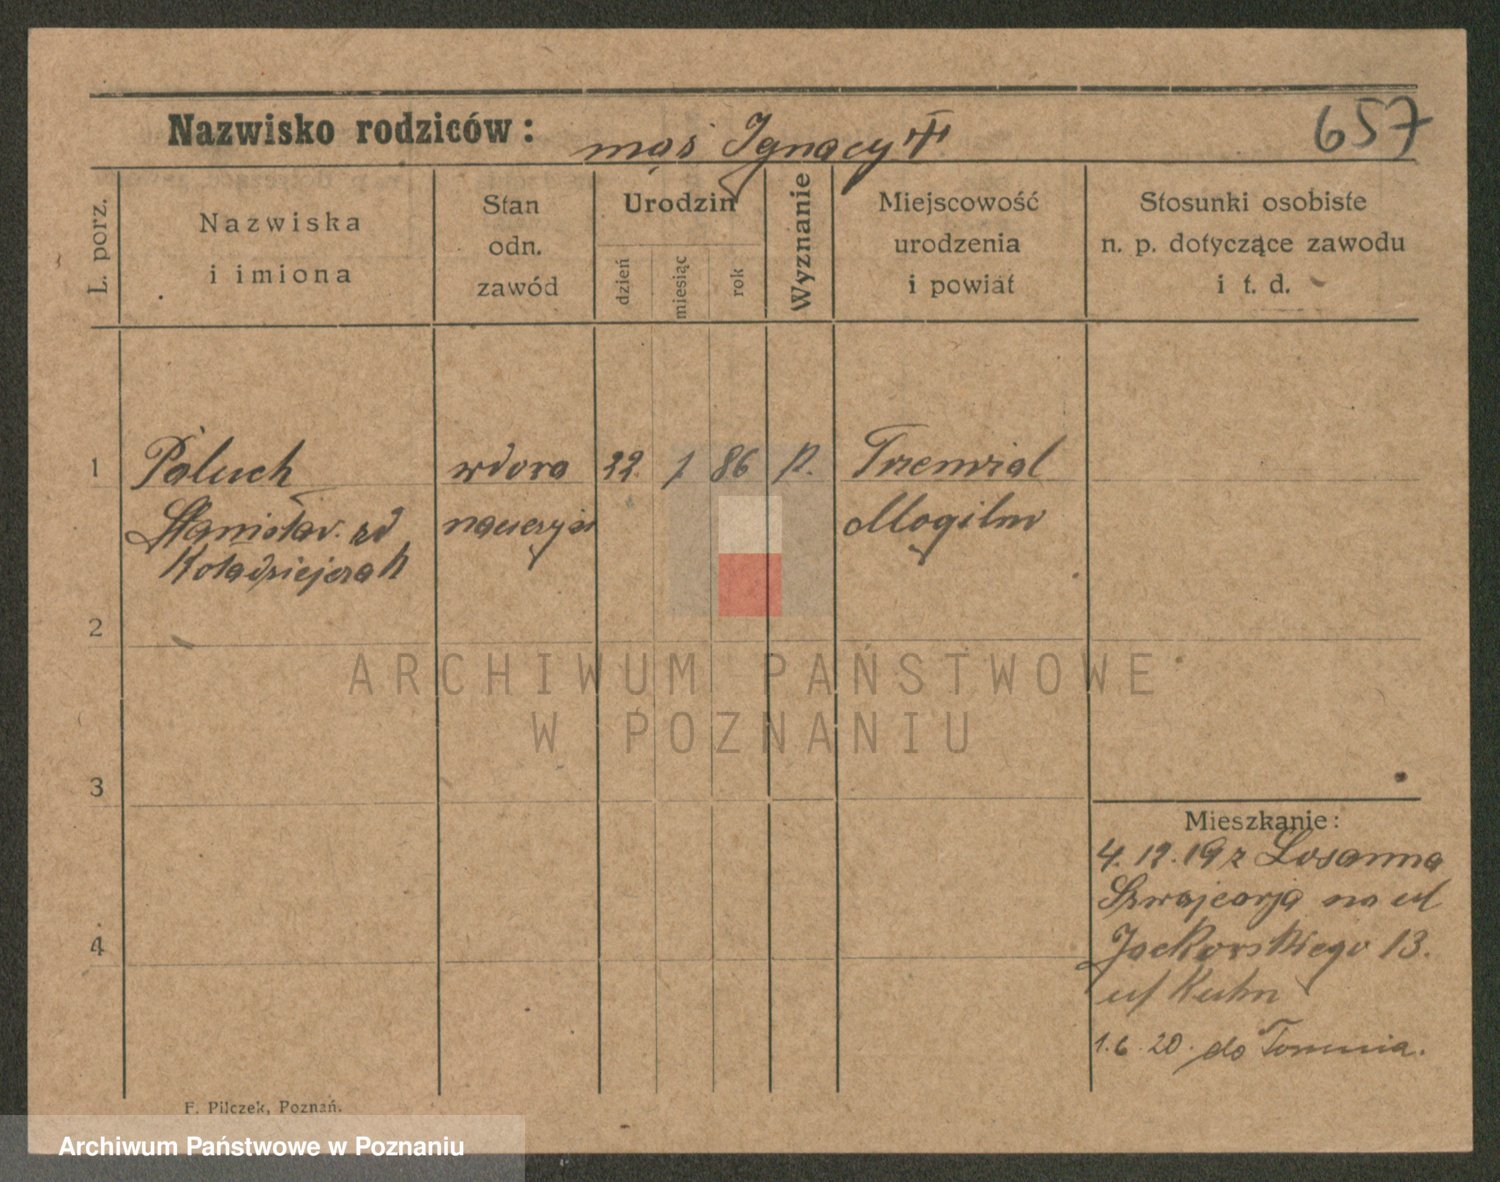 657
Nazwisko rodziców: mąż Ignacy
L. porz.
Nazwiska
i imiona
Stan
odn.
zawód
Urodzin
dzień
miesiąc
rok
Wyznanie
Miejscowość
urodzenia
i powiat
Stosunki osobiste
n. p. dotyczące zawodu
i t. d.
1
Paluch
Stanisław. zd
Kołodziejczak
wdowa
22. 1 86
Trzemżal
Mogilno
2
3
4
Mieszkanie:
4. 12. 19 z Losanna
Szwajcarja na ul
Jackowskiego 13.
u/ Kuhn
1. 6. 20. do Torunia.
F. Pilczek, Poznań.
ARCHIWUM PAŃSTWOWE
W POZNANIU
Archiwum Państwowe w Poznaniu